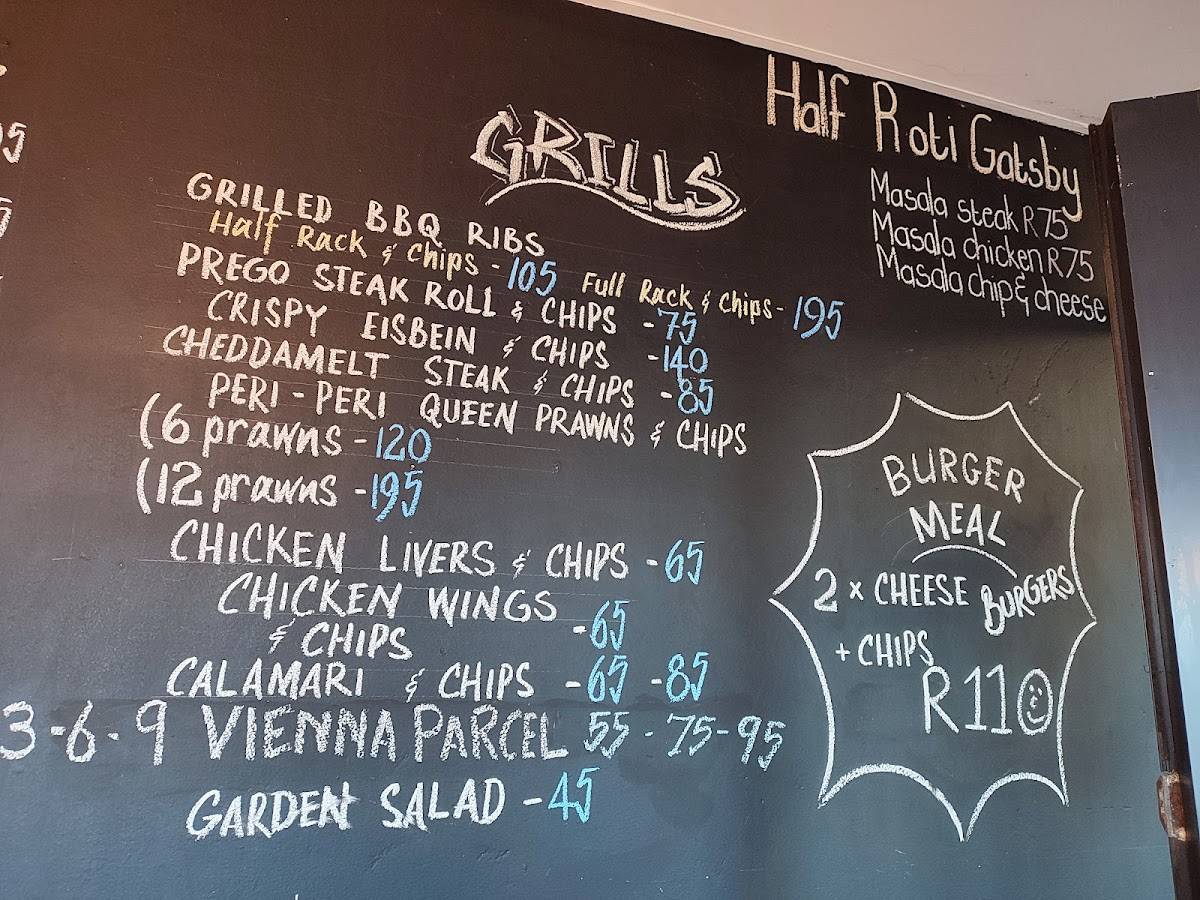 GRILLS
GRILLED BBQ RIBS
Half Rack & Chips - 105 Full Rack & Chips - 195
PREGO STEAK ROLL & CHIPS - 75
CRISPY EISBEIN & CHIPS - 140
CHEDDAMELT STEAK & CHIPS - 85
PERI-PERI QUEEN PRAWNS & CHIPS
(6 prawns - 120
(12 prawns - 195
CHICKEN LIVERS & CHIPS - 65
CHICKEN WINGS
& CHIPS - 65
CALAMARI & CHIPS - 65 - 85
3-6-9 VIENNA PARCEL 55 - 75 - 95
GARDEN SALAD - 45
Half Roti Gatsby
Masala steak R75
Masala chicken R75
Masala chip & cheese
BURGER
MEAL
2 x CHEESE BURGERS
+ CHIPS
R110